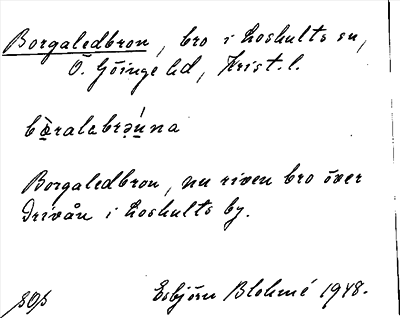 Borgaledbron, bro i Loshults sn,
Ö. Göinge hd, Krist. l.
Borgaledbron, nu riven bro över
Drivån i Loshults by.
Esbjörn Blohmé 1948.